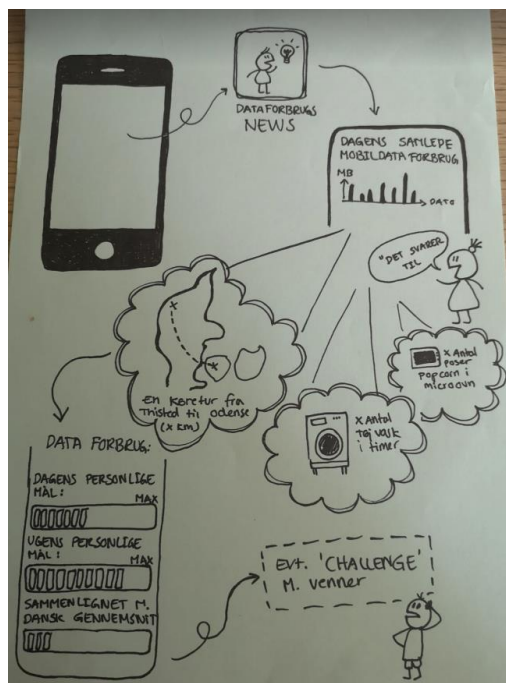 DATAFORBRUGS
NEWS
DAGENS SAMLEDE
MOBILDATAFORBRUG
MB
DATO
"DET SVARER
TIL
En Køretur fra
Thisted til odense
(x km)
x Antal
Tøj vask
i timer
x Antal
poser
popcorn i
microovn
DATA FORBRUG:
DAGENS PERSONLIGE
MÅL:
MAX
UGENS PERSONLIGE
MÅL:
MAX
SAMMENLIGNET M.
DANSK GENNEMSNIT
Evt. 'CHALLENGE'
M. venner